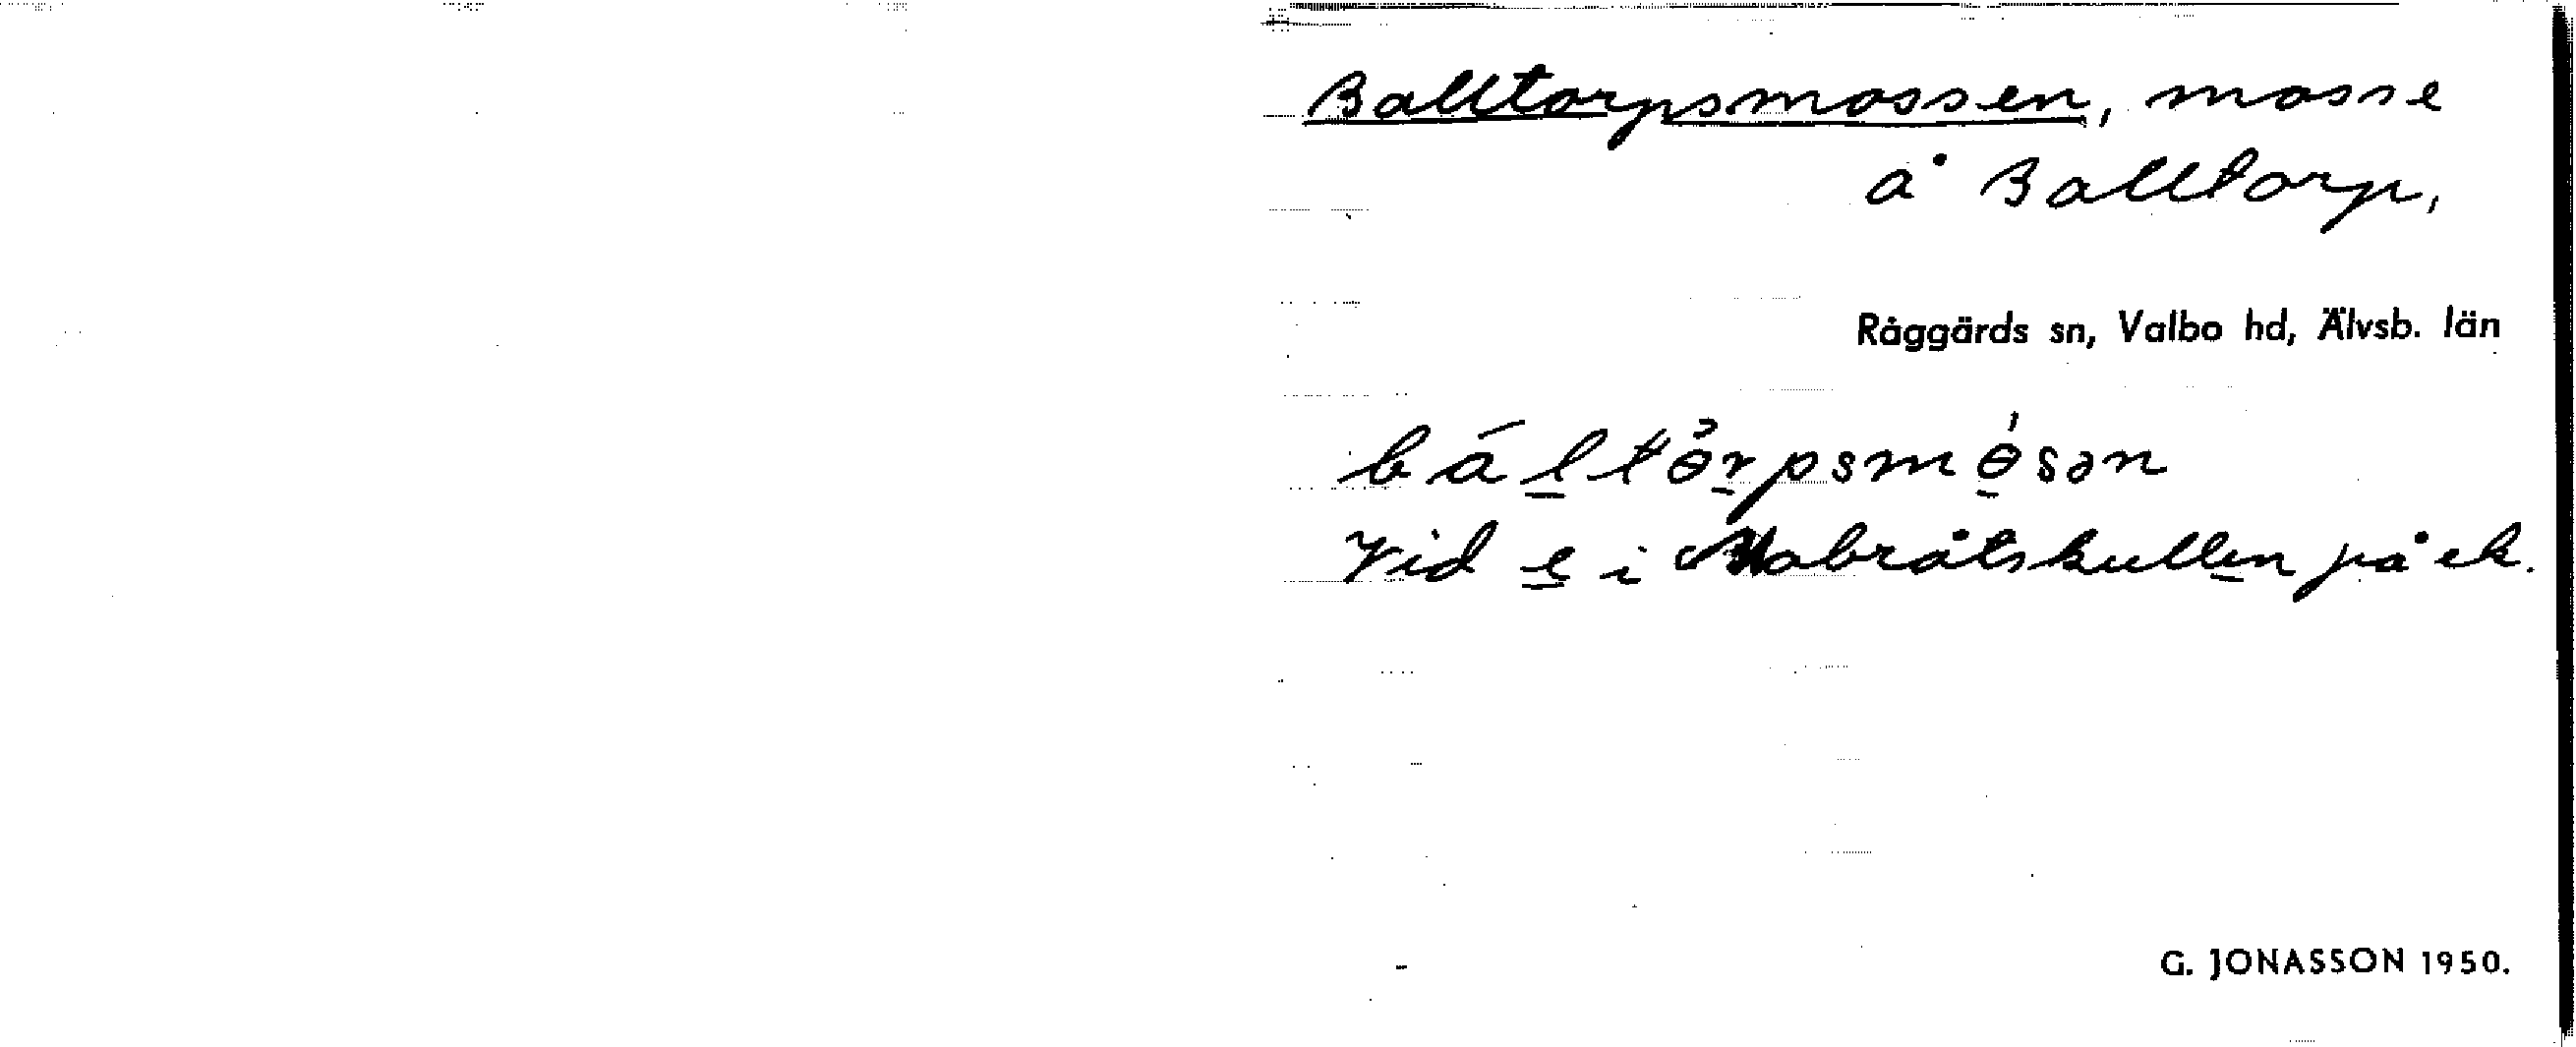 Balltorpsmossen, mosse
å Balltorp,
Råggärds sn, Valbo hd, Älvsb. län
báltɵ̀rpsmɵ́sən
Vid e i Mabråtskullen på ek.
G. JONASSON 1950.